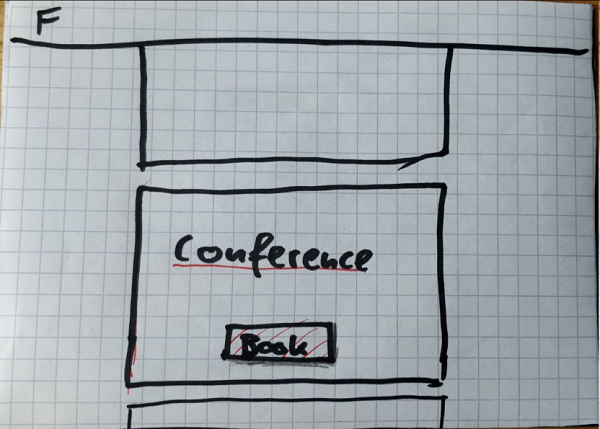 F
Conference
Book